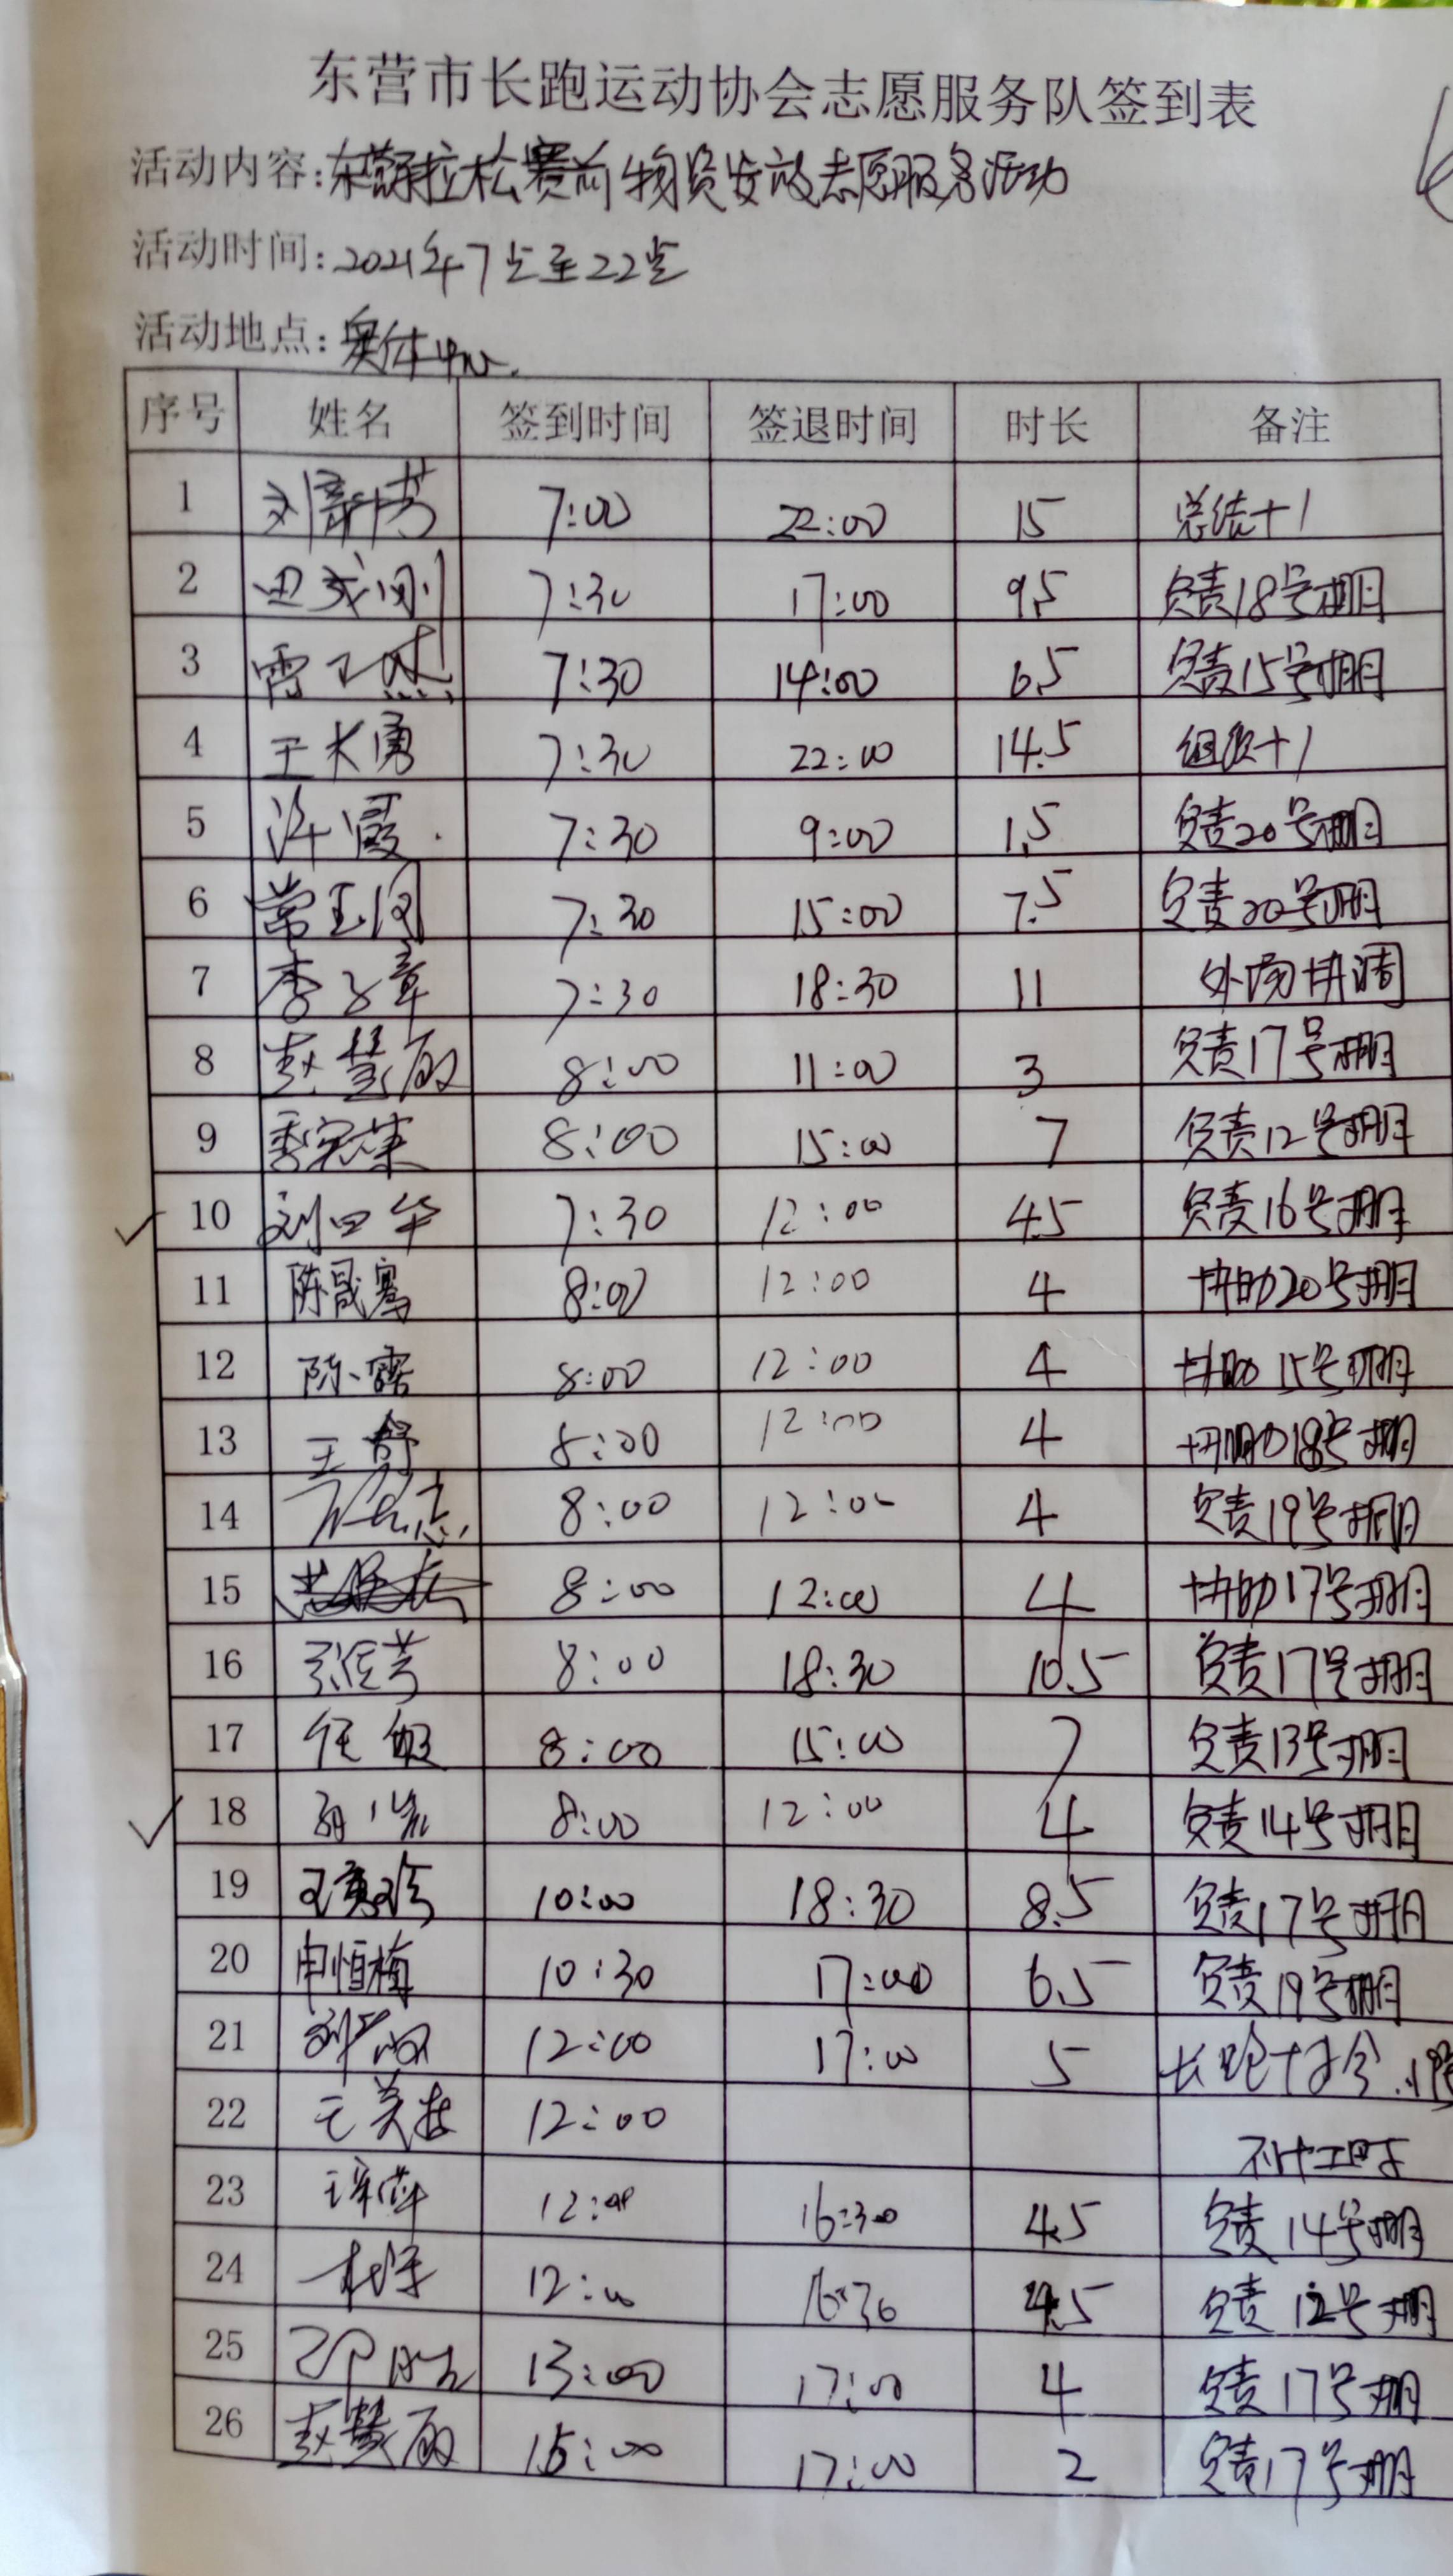 东营市长跑运动协会志愿服务队签到表
活动内容:东营马拉松赛前物资发放志愿服务活动
活动时间:2021年7点至22点
活动地点:奥体中心.
序号 姓名 签到时间 签退时间 时长 备注
1 刘新芳 7:00 22:00 15 总结+1
2 7:30 17:00 9.5 负责18号棚
3 7:30 14:00 6.5 负责15号棚
4 王大勇 7:30 22:00 14.5 +1
5 许霞 7:30 9:00 1.5 负责20号棚
6 7:30 15:00 7.5 负责20号棚
7 李子章 7:30 18:30 11 外场协调
8 赵慧敏 8:00 11:00 3 负责17号棚
9 8:00 15:00 7 负责12号棚
10 刘四华 7:30 12:00 4.5 负责16号棚
11 陈晟骞 8:00 12:00 4 协助20号棚
12 陈露 8:00 12:00 4 协助15号棚
13 王舒 8:00 12:00 4 协助18号棚
14 8:00 12:00 4 负责19号棚
15 8:00 12:00 4 协助17号棚
16 8:00 18:30 10.5 负责17号棚
17 任敏 8:00 15:00 7 负责13号棚
18 8:00 12:00 4 负责14号棚
19 10:00 18:30 8.5 负责17号棚
20 申恒梅 10:30 17:00 6.5 负责19号棚
21 12:00 17:00 5 长跑
22 12:00 不计工时
23 12:00 16:30 4.5 负责14号棚
24 12:00 16:30 4.5 负责12号棚
25 13:00 17:00 4 负责17号棚
26 赵慧敏 15:00 17:00 2 负责17号棚